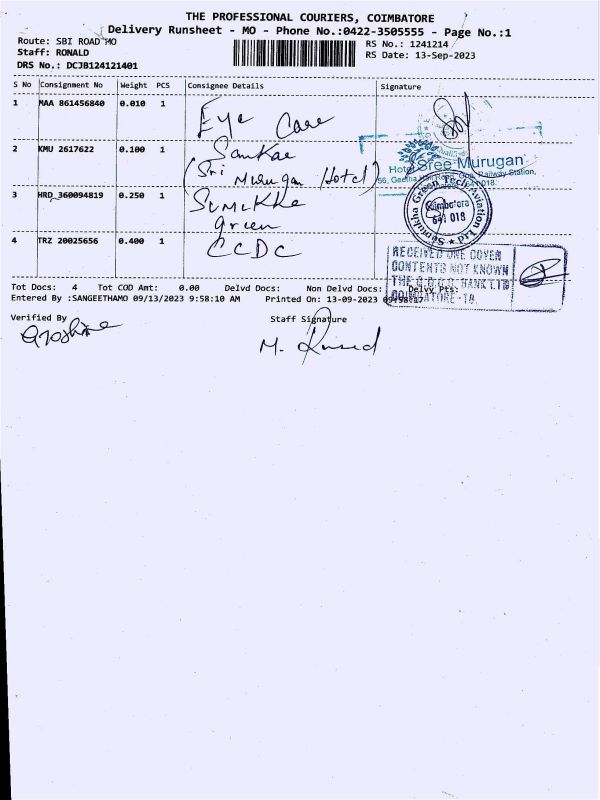 THE PROFESSIONAL COURIERS, COIMBATORE
Delivery Runsheet - MO - Phone No.:0422-3505555 - Page No.:1
Route: SBI ROAD MO
RS No.: 1241214
Staff: RONALD
RS Date: 13-Sep-2023
DRS No.: DCJB124121401
S No Consignment No Weight PCS Consignee Details Signature
1 MAA 861456840 0.010 1 Eye Care
2 KMU 2617622 0.100 1 Sankae
(Sri Murugan Hotel)
Hotel Sree Murugan
Railway Station,
3 HRD 360094819 0.250 1
green
Green Tech Aviation Pvt Ltd
Coimbatore
641 018
4 TRZ 20025656 0.400 1 CCDC
RECEIVED ONE COVER
CONTENTS NOT KNOWN
THE C.D.C.C. BANK LTD
COIMBATORE-18.
Tot Docs: 4 Tot COD Amt: 0.00 Delvd Docs: Non Delvd Docs: Delvy Pts:
Entered By :SANGEETHAMO 09/13/2023 9:58:10 AM Printed On: 13-09-2023 09:58:17
Verified By
Staff Signature
M.